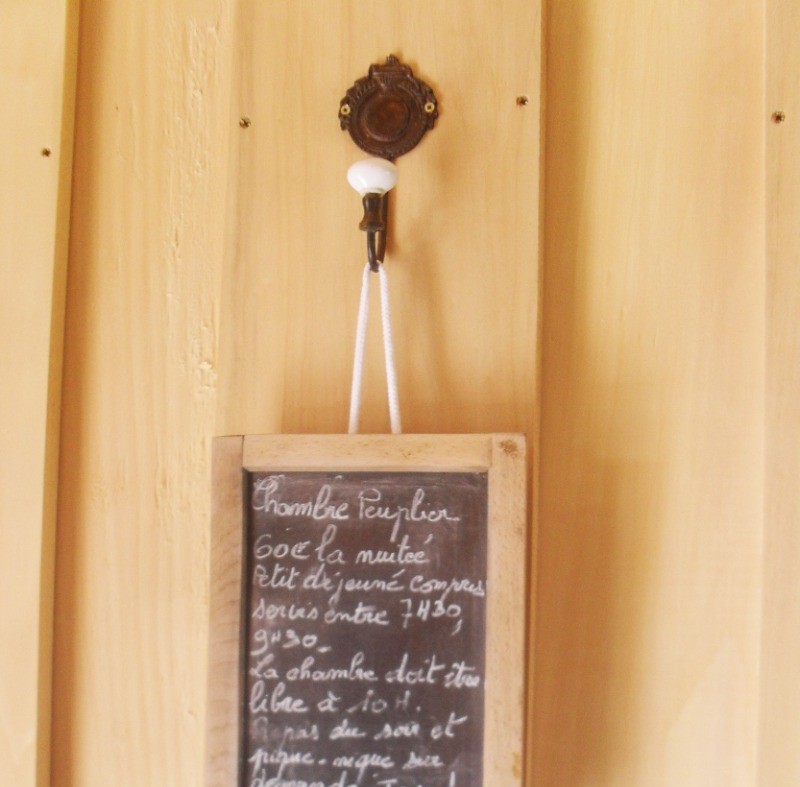 Chambre Peuplier
60€ la nuiteé
Petit déjeuné compris
servis entre 7H30,
9H30.
La chambre doit être
libre à 10H.
Repas du soir et
pique-nique sur
demande